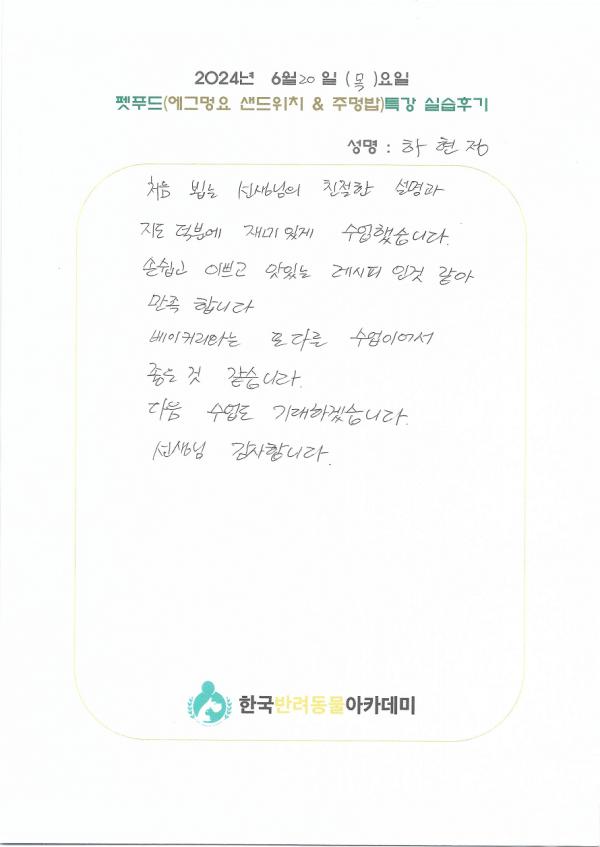 2024년 6월 20 일 ( 목 )요일
펫푸드(에그멍요 샌드위치 & 주멍밥)특강 실습후기
성명 : 하 현 정
처음 뵙는 선생님의 친절한 설명과
지도 덕분에 재미 있게 수업했습니다.
손쉽고 이쁘고 맛있는 레시피 인것 같아
만족 합니다
베이커리와는 또 다른 수업이어서
좋은 것 같습니다.
다음 수업도 기대하겠습니다.
선생님 감사합니다.
한국반려동물아카데미